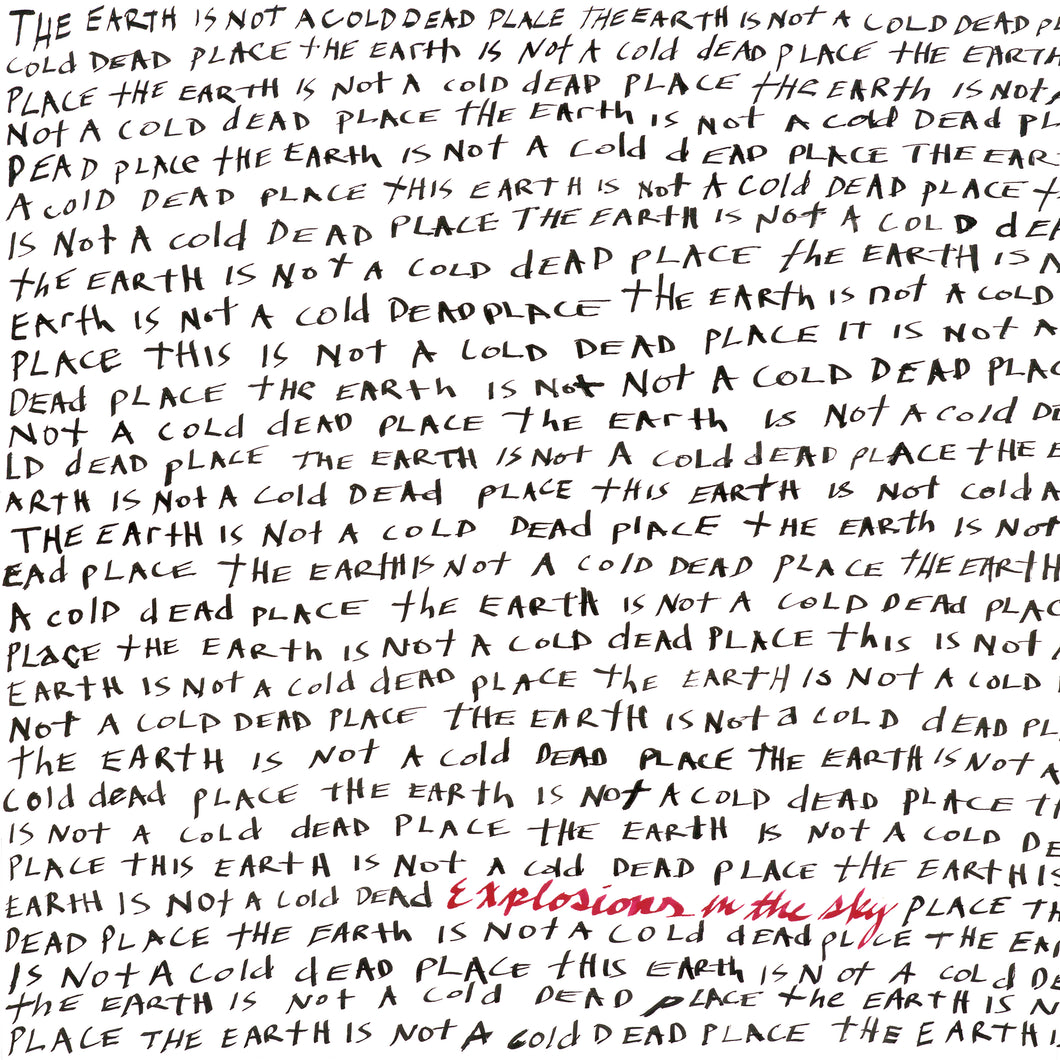 THE EARTH IS NOT A COLD DEAD PLACE THE EARTH IS NOT A COLD DEAD PL
COLD DEAD PLACE tHE EARth IS NOt A Cold dEAD PLACE tHE EARTH
PLACE tHE EARTH IS NOt A COld DEAD PLACE tHE EARth IS NOt A
NOt A COLD dEAD PLACE tHE EArth IS NOt A Cold DEAd PL
DEAD PLACe tHE EARth IS NOt A Cold dEAD PLACE THE EAR
A COlD DEAD PLACE tHIS EARTH IS NOt A COld DEAD pLACE t
IS NOt A cold DEAD PLACE THE EARtH IS NOt A COLD dEA
thE EARTH IS NOt A COLD dEAD PLACE the EARTH IS N
EArth IS NOt A COld DEAD PLACE tHE EARth IS not A COLD
PLACE tHIS IS NOt A COLD DEAD PLACE It IS NOt A
DEAd PLACE tHe EARth IS NOt NOt A COLD DEAD PLAC
NOt A COLd dEAD PLACE the EARth IS NOt A COld DE
LD dEAD pLACE THE EARTH IS NOt A COLd dEAD pLACE tHE E
ARTH IS NOt A Cold DEAd PLACE tHIS EARtH IS NOt cold A
THE EArtH IS NOt A COLD DEAd plACE tHE EARth IS NOt
EAd PLACE tHE EARtH IS NOt A COlD DEAD PLACE tHE EARtH
A COlD dEAd PLACE the EARtH IS NOt A COLD DEAd PLAC
PLACE tHE EARth IS NOt A COLD dEAd PLACE thIS IS NOt A
EARtH IS NOt A Cold dEAD pLACE the EARTH IS NOt A COLD
NOt A COLD DEAD PLACE tHE EARtH IS NOt a COLD dEAD PL
thE EARTH IS NOt A Cold DEAD PLACE THE EARTH IS NOt A
COld deAd PLACE tHE EARth IS NOt A COLD dEAD PLACE t
IS NOt A Cold dEAD PLACE tHE EARtH IS NOt A COLD DE
PLACE tHIS EARtH IS NOt A Cold DEAD PLACE tHE EARtH IS
EARTH IS NOt A COld DEAd Explosions in the sky PLACE TH
DEAD PLACE tHE EARth IS NOt A COLD dEAd pLACE tHE EAR
IS NOt A Cold dEAD PLACe tHIS EARth IS NOt A COLd DE
thE EARtH IS NOt A COLd DEAD pLACE the EARtH IS N
PLACE THE EARtH IS NOt A cold DEAD PLACE tHE EARTH IS